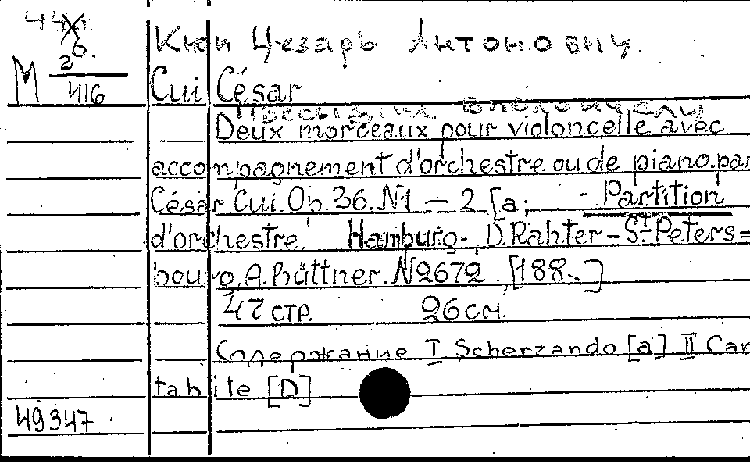 Кюи Цезарь Антонович.
M 2/416
Cui César
Deux morceaux pour violoncelle avec
accompagnement d'orchestre ou de piano par
César Cui. Op. 36. N1 – 2 [a; - Partition
d'orchestre. Hamburg. D. Rahter – St Peters=
bourg, A. Büttner. N2672 [188..]
47 стр. 26 см
Содержание I Scherzando [a] II Can
tabile [D]
49347